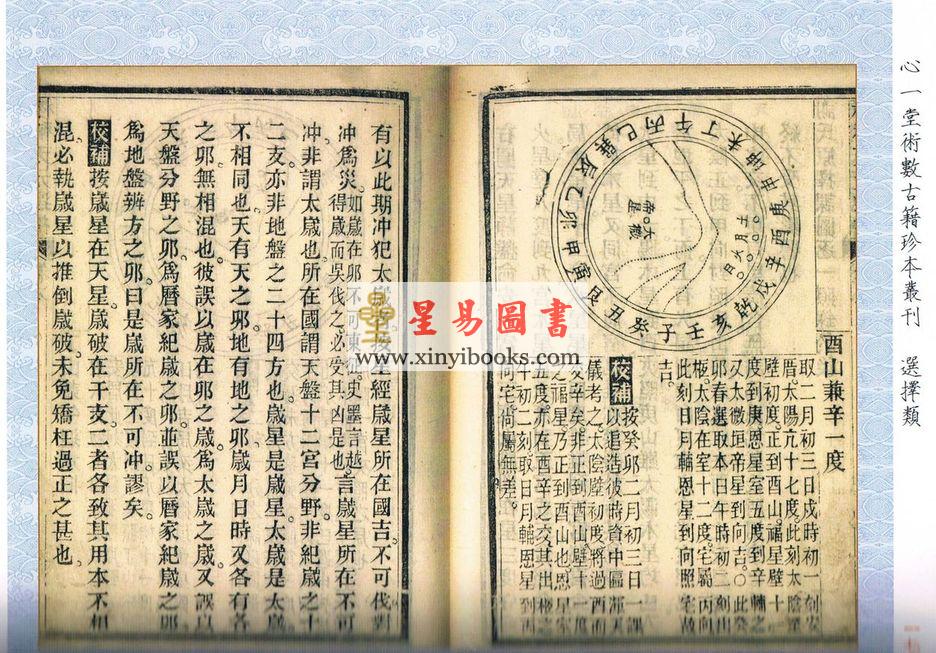 心一堂術數古籍珍本叢刊 選擇類
壬子癸丑艮寅甲卯乙辰巽巳丙午丁未坤申庚酉辛戌乾亥
酉山兼辛一度
取二月初三日戌時初一刻安
厝太陽亢十七度此刻太陰
壁初度正到酉山福星壁十一
度到庚恩星室五度到辛
又太微垣帝星到向吉〇此癸
卯春選取本日午時初二刻出
極太陰在室十二度宅屬丙向
此刻日月輔恩星到向照宅故
吉
校補 按癸卯二月初三日一課
以追造彼時資中區渾天
儀考之太陰壁初度將過酉而
交辛矣非正到酉山壁十一度
之福星乃正到酉山也恩星室
五度亦在酉辛之交其出極之
午初二刻取日月輔恩星到丙
向宅尚屬無差
有以此期冲犯太歲
星經歲星所在國吉不可伐對
冲爲災
如歲在卯不可東征史墨言越
得歲而吳伐之必受其凶是也
言歲星所在不可
冲非謂太歲也所在國謂天盤十二宮分野非紀歲之十
二支亦非地盤之二十四方也歲星是歲星太歲是太歲
不相同也天有天之卯地有地之卯歲月日時又各有各
之卯無相混也彼誤以歲在卯之歲爲太歲之歲又誤以
天盤分野之卯爲曆家紀歲之卯並誤以曆家紀歲之卯
爲地盤辨方之卯曰是歲所在不可冲謬矣
校補 按歲星在天星歲破在干支二者各致其用本不相
混必執歲星以推倒歲破未免矯枉過正之甚也
星易圖書
www.xinyibooks.com